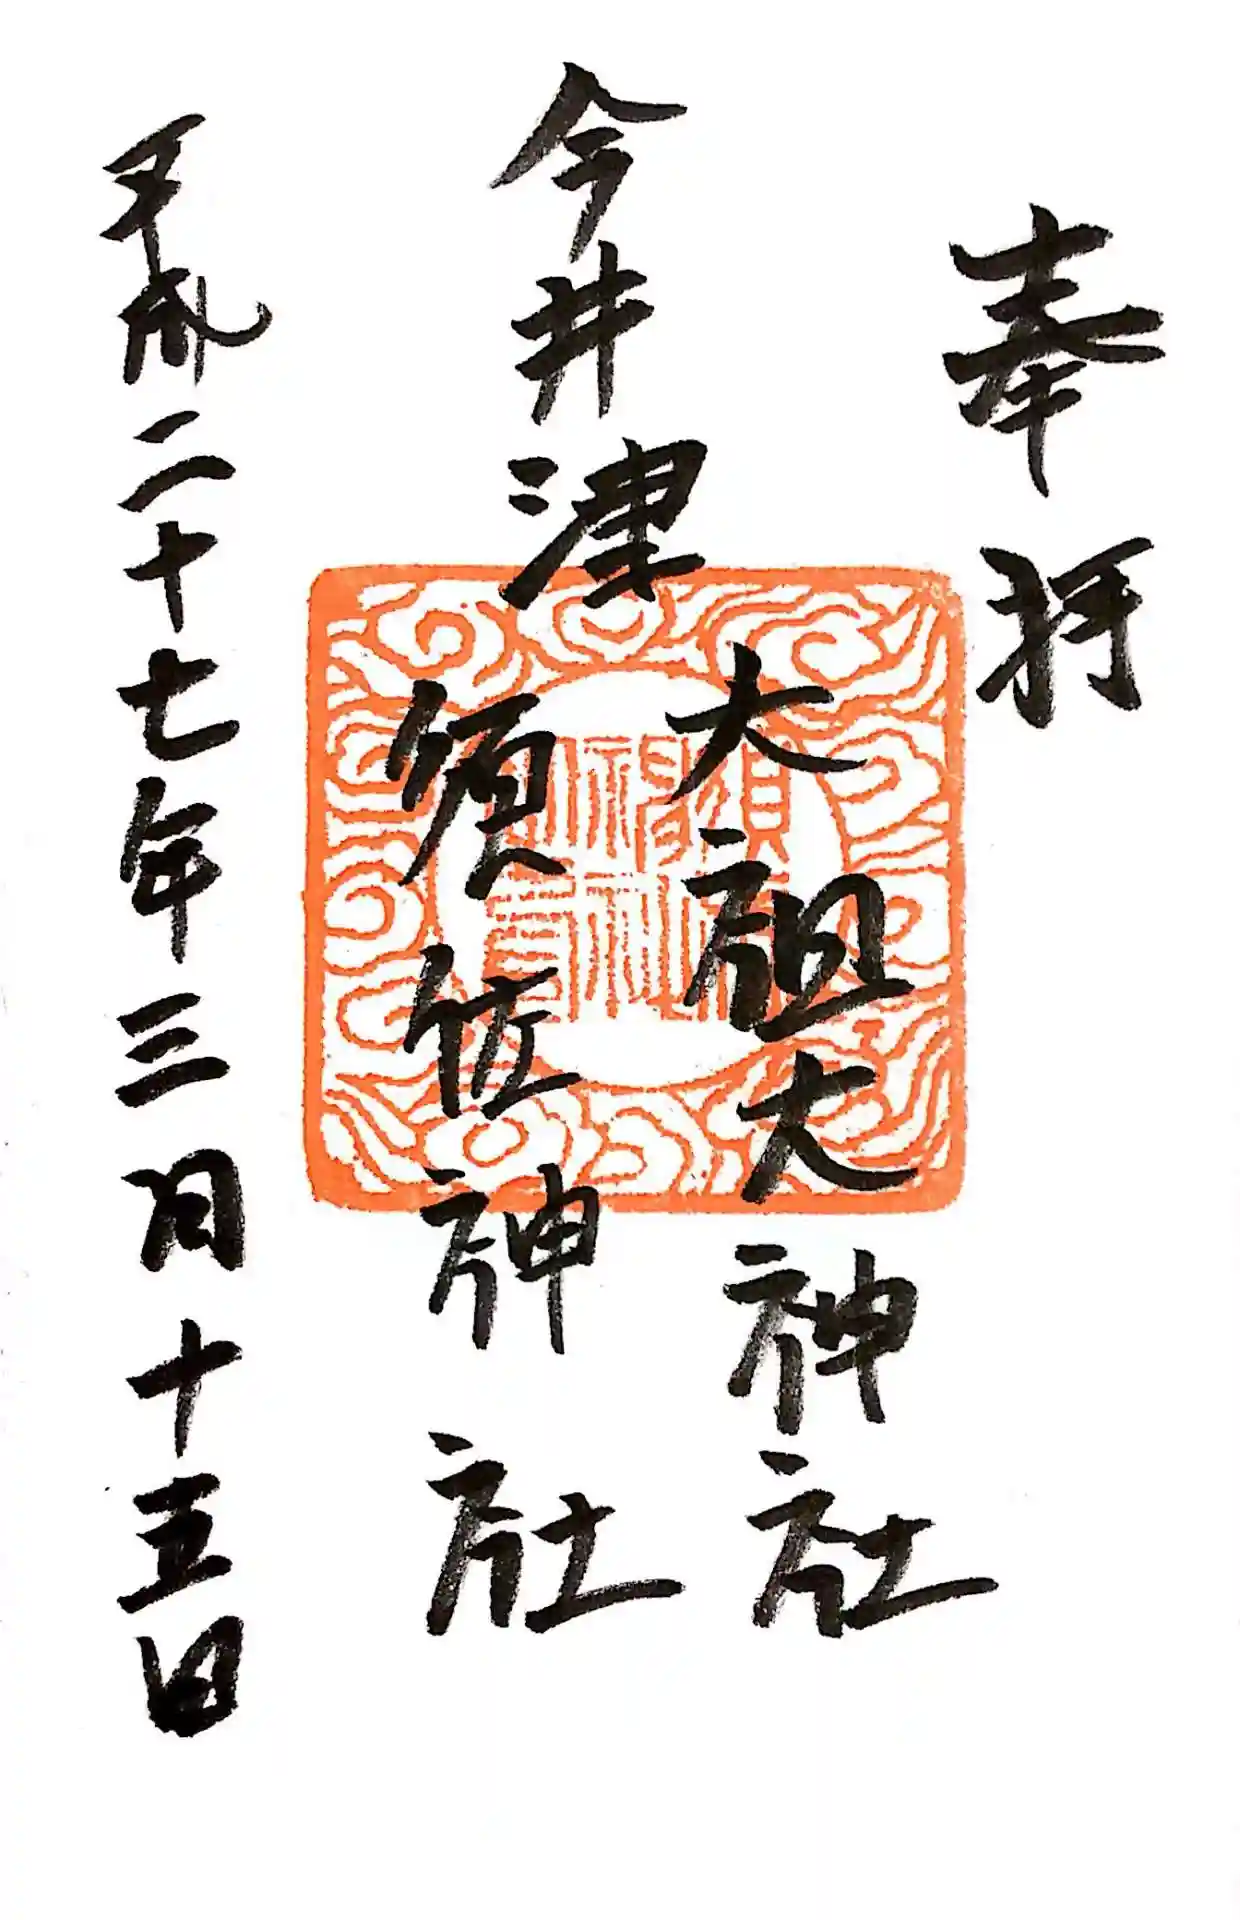 奉拝
今井津
大祖大神社
須佐神社
平成二十七年三月十五日